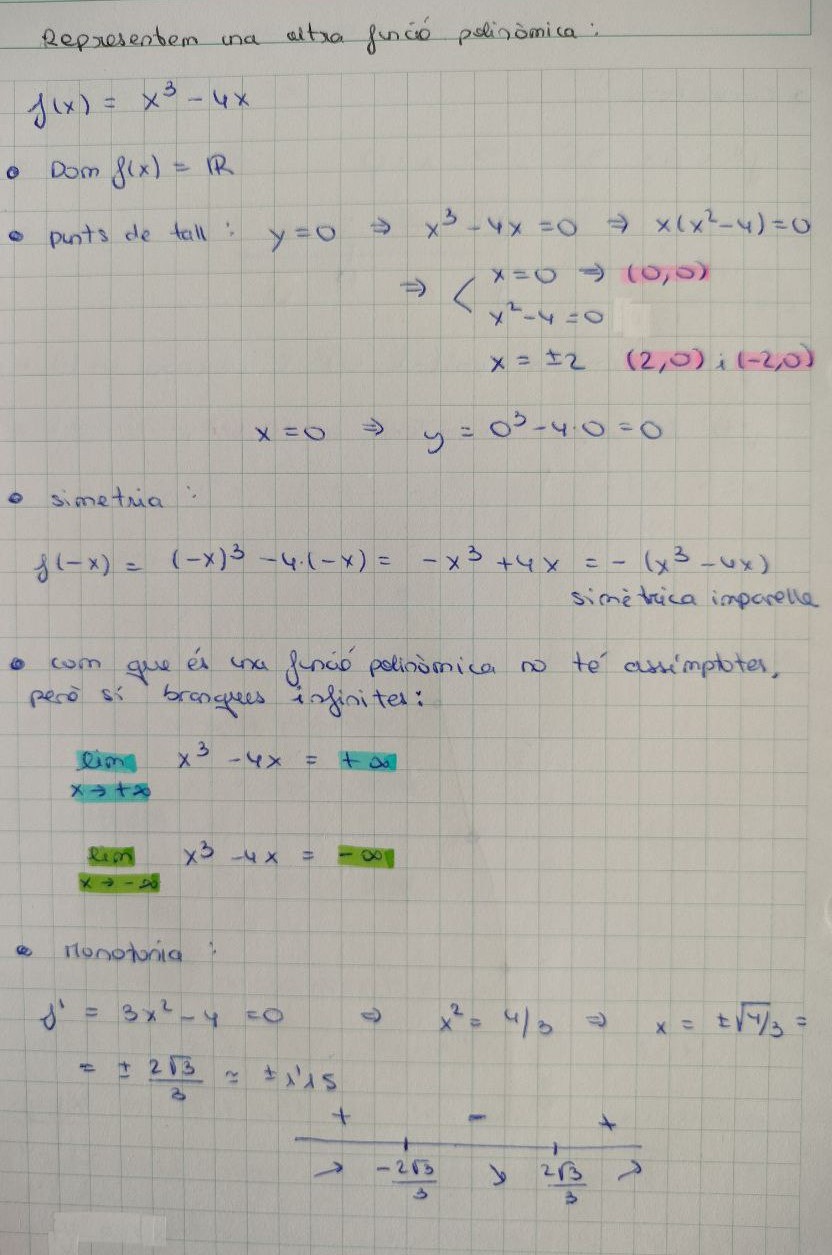 Representem una altra funció polinòmica:
f(x) = x³ - 4x
• Dom f(x) = ℝ
• punts de tall: y=0 ⇒ x³ - 4x = 0 ⇒ x(x²-4)=0
⇒ < x=0 ⇒ (0,0)
x²-4=0
x = ±2 (2,0) i (-2,0)
x=0 ⇒ y = 0³-4·0 = 0
• simetria:
f(-x) = (-x)³ - 4·(-x) = -x³ + 4x = -(x³ - 4x)
simètrica imparella
• com que és una funció polinòmica no té assímptotes,
però sí branques infinites:
lim x³ - 4x = +∞
x→+∞
lim x³ - 4x = -∞
x→-∞
• Monotonia:
f' = 3x² - 4 = 0 ⇒ x² = 4/3 ⇒ x = ±√4/3 =
= ± 2√3/3 ≃ ±1'15
+ - +
↗ -2√3/3 ↘ 2√3/3 ↗